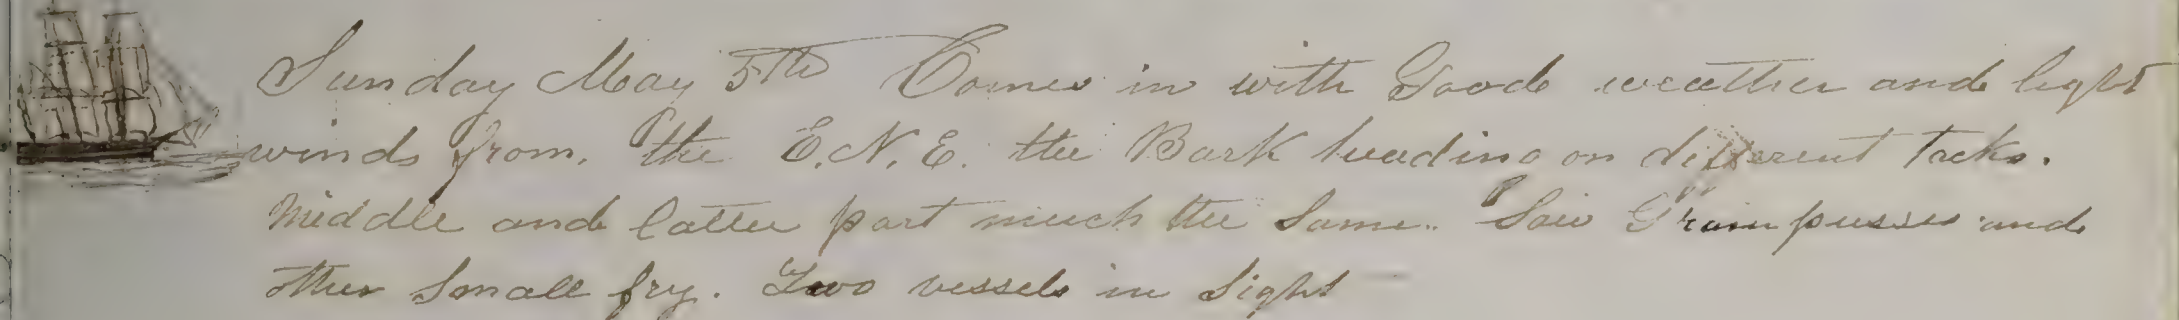 Sunday May 5th Comes in with Good weather and light
winds from. the E.N.E. the Bark heading on different tacks.
Middle and latter part much the Same.. Saw Grampusses and
other Small fry. Two vessels in Sight